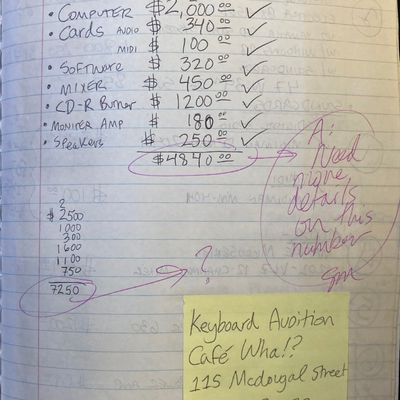 • COMPUTER $2,000.00 ✓
• Cards AUDIO $ 340.00 ✓
MIDI $ 100.00 ✓
• SOFTWARE $ 320.00 ✓
• MIXER $ 450.00 ✓
• CD-R Burner $ 1200.00 ✓
• MONITER AMP $ 180.00 ✓
• Speakers $ 250.00 ✓
$4840.00
A:
Need
more
details
on this
number
sm
?
$ 2500
1000
300
1600
1100
750
7250
?
Keyboard Audition
Café Wha!?
115 McDougal Street